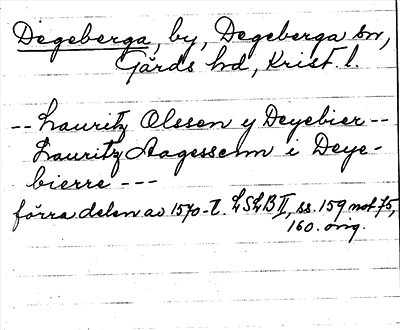 Degeberga, by, Degeberga sn,
Gärds hd, Krist. l.
-- Lauritz Olssen y Deyebier --
Lauritz Aagessenn i Deye-
bierre ---
förra delen av 1570-t. LSLB II, ss. 159 not 75,
160. orig.